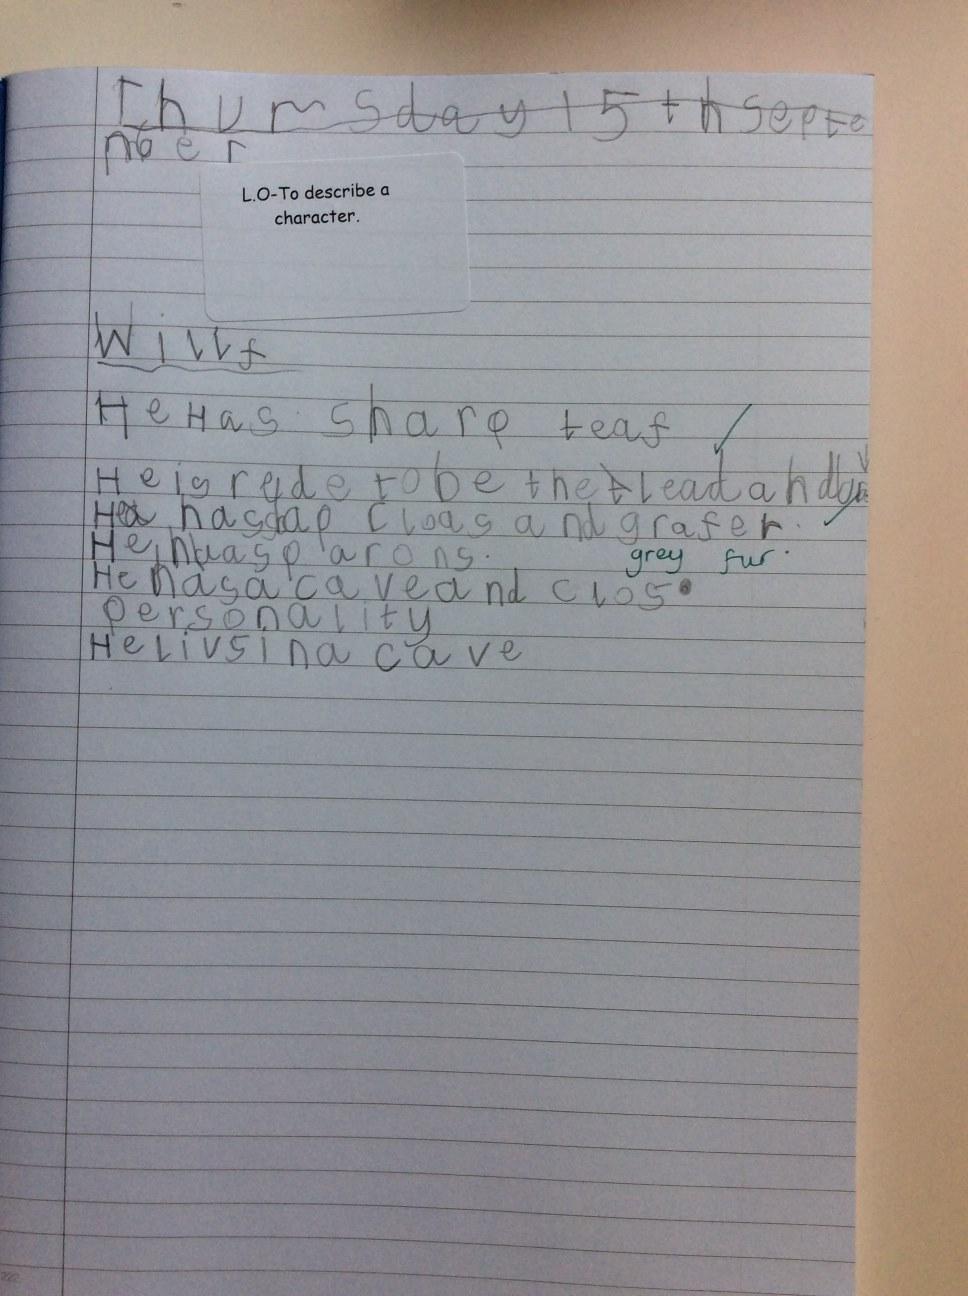 Thursday 15th Septe
mber
L.O-To describe a
character.
Willf
He Has sharp teaf
He is rede to be the lead and
He has sap cloas and grafer.
He has parons.
grey fur.
He has a cave and clos
personality
He livs in a cave